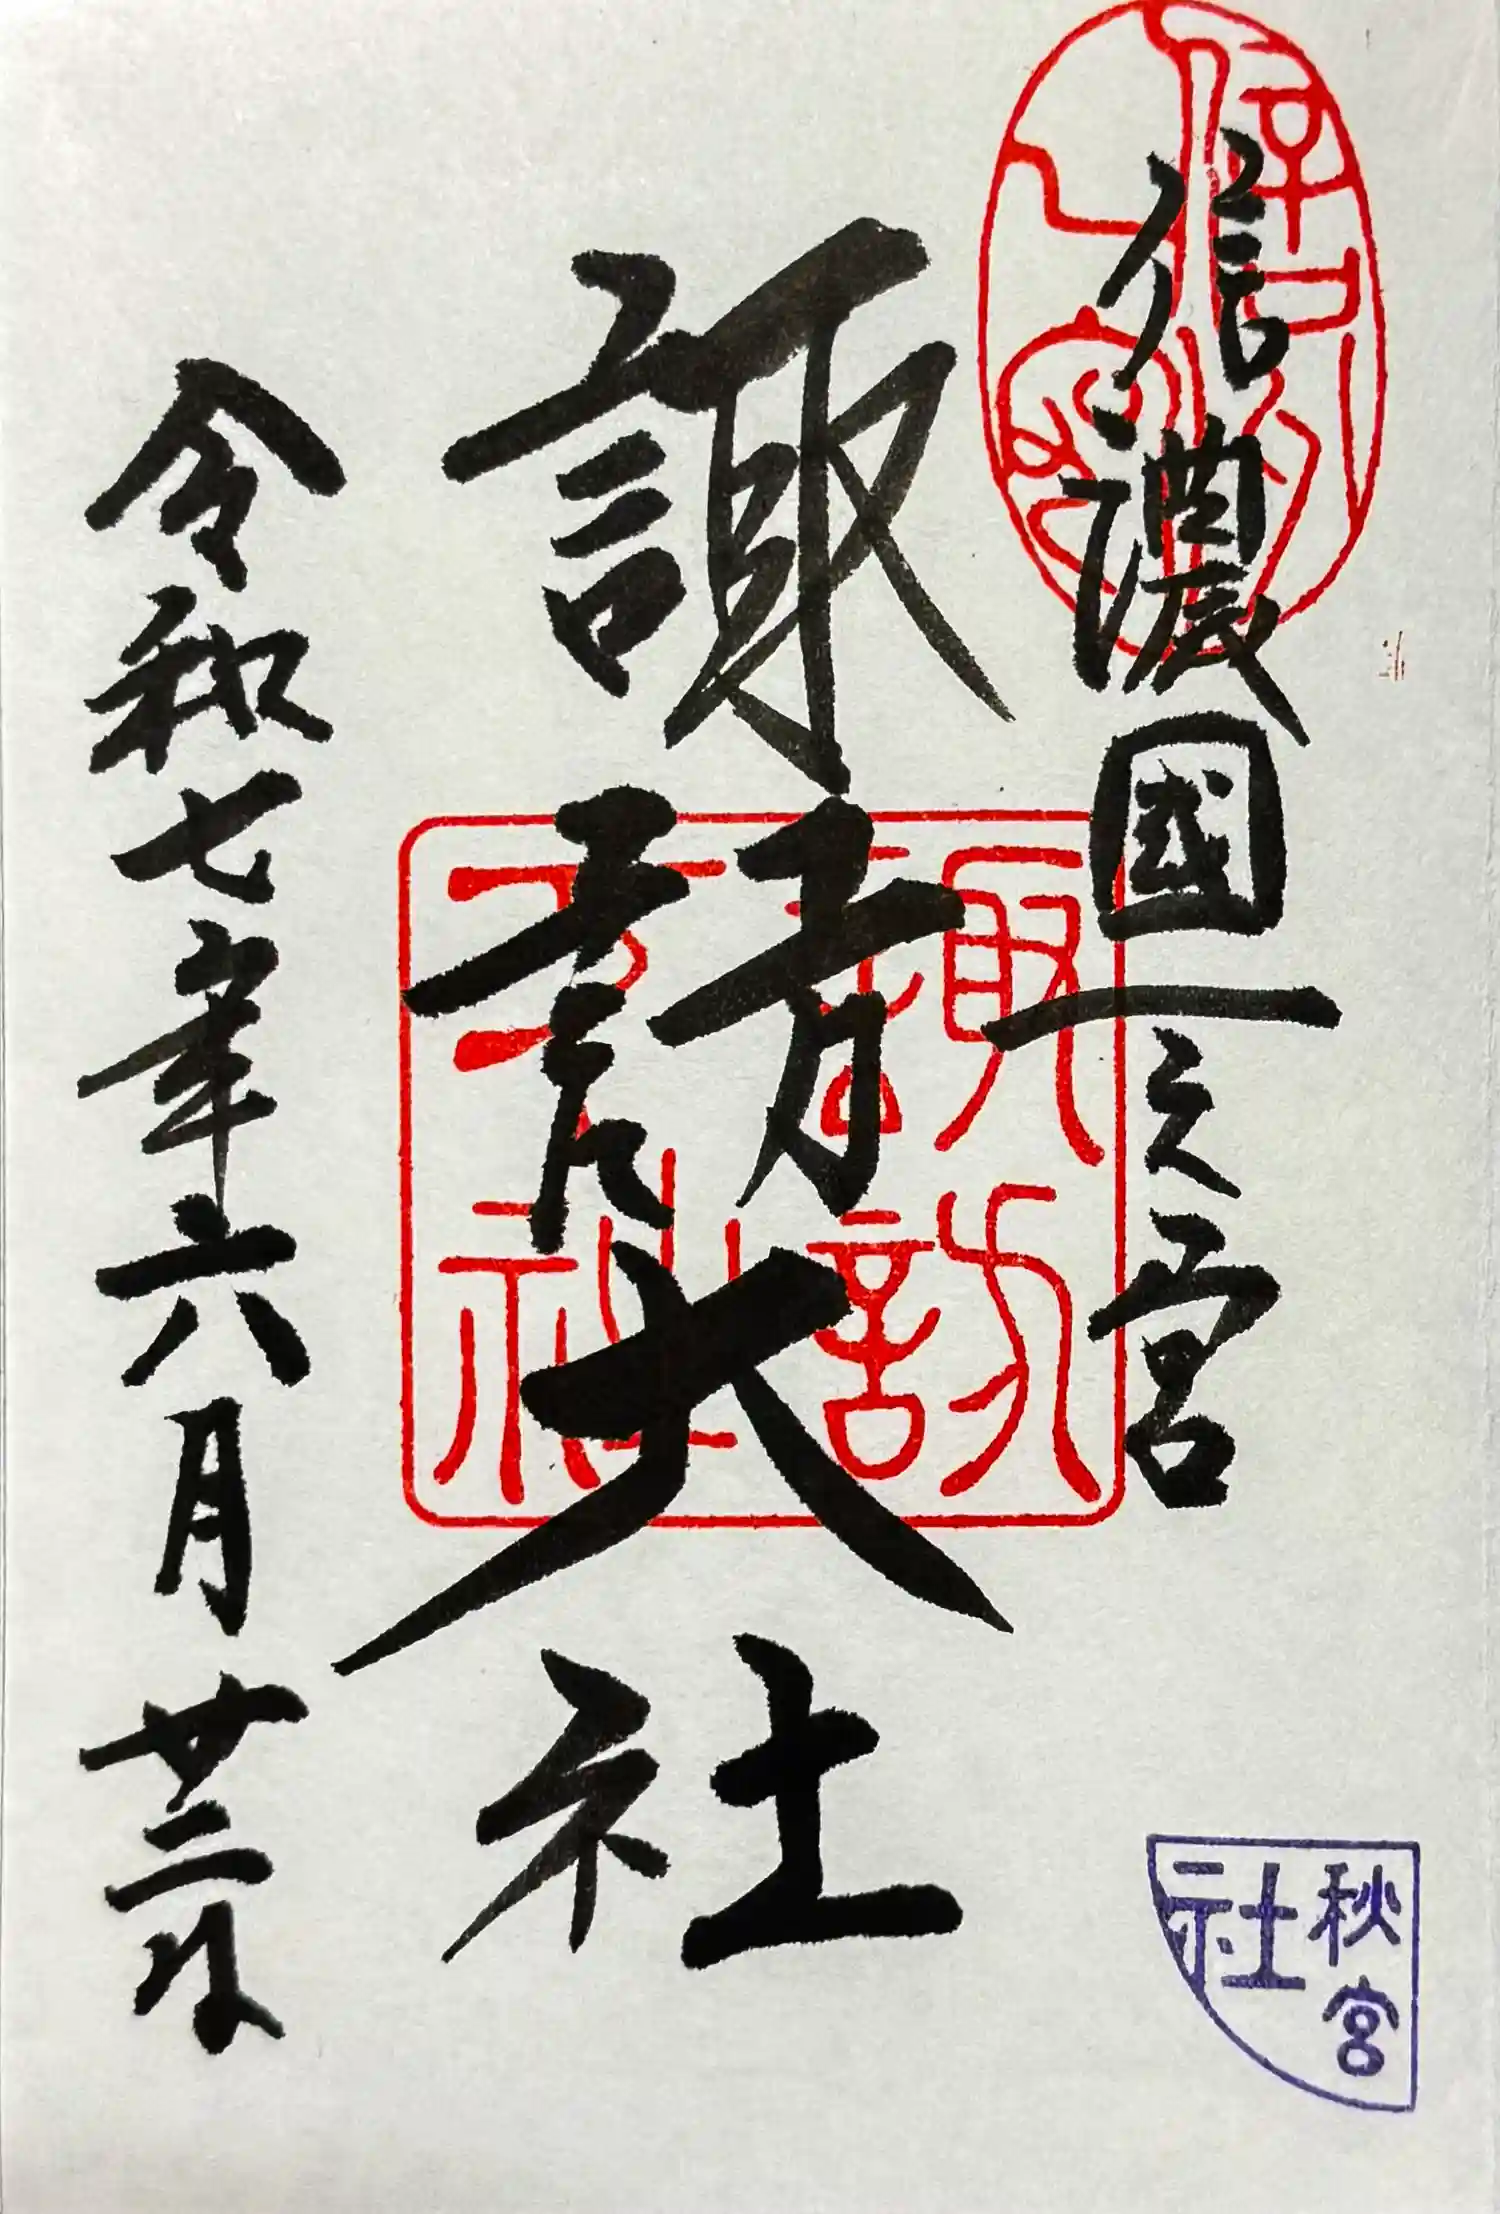 信濃國一之宮
諏訪大社
令和七年六月廿二日
諏訪
大社
秋宮
社